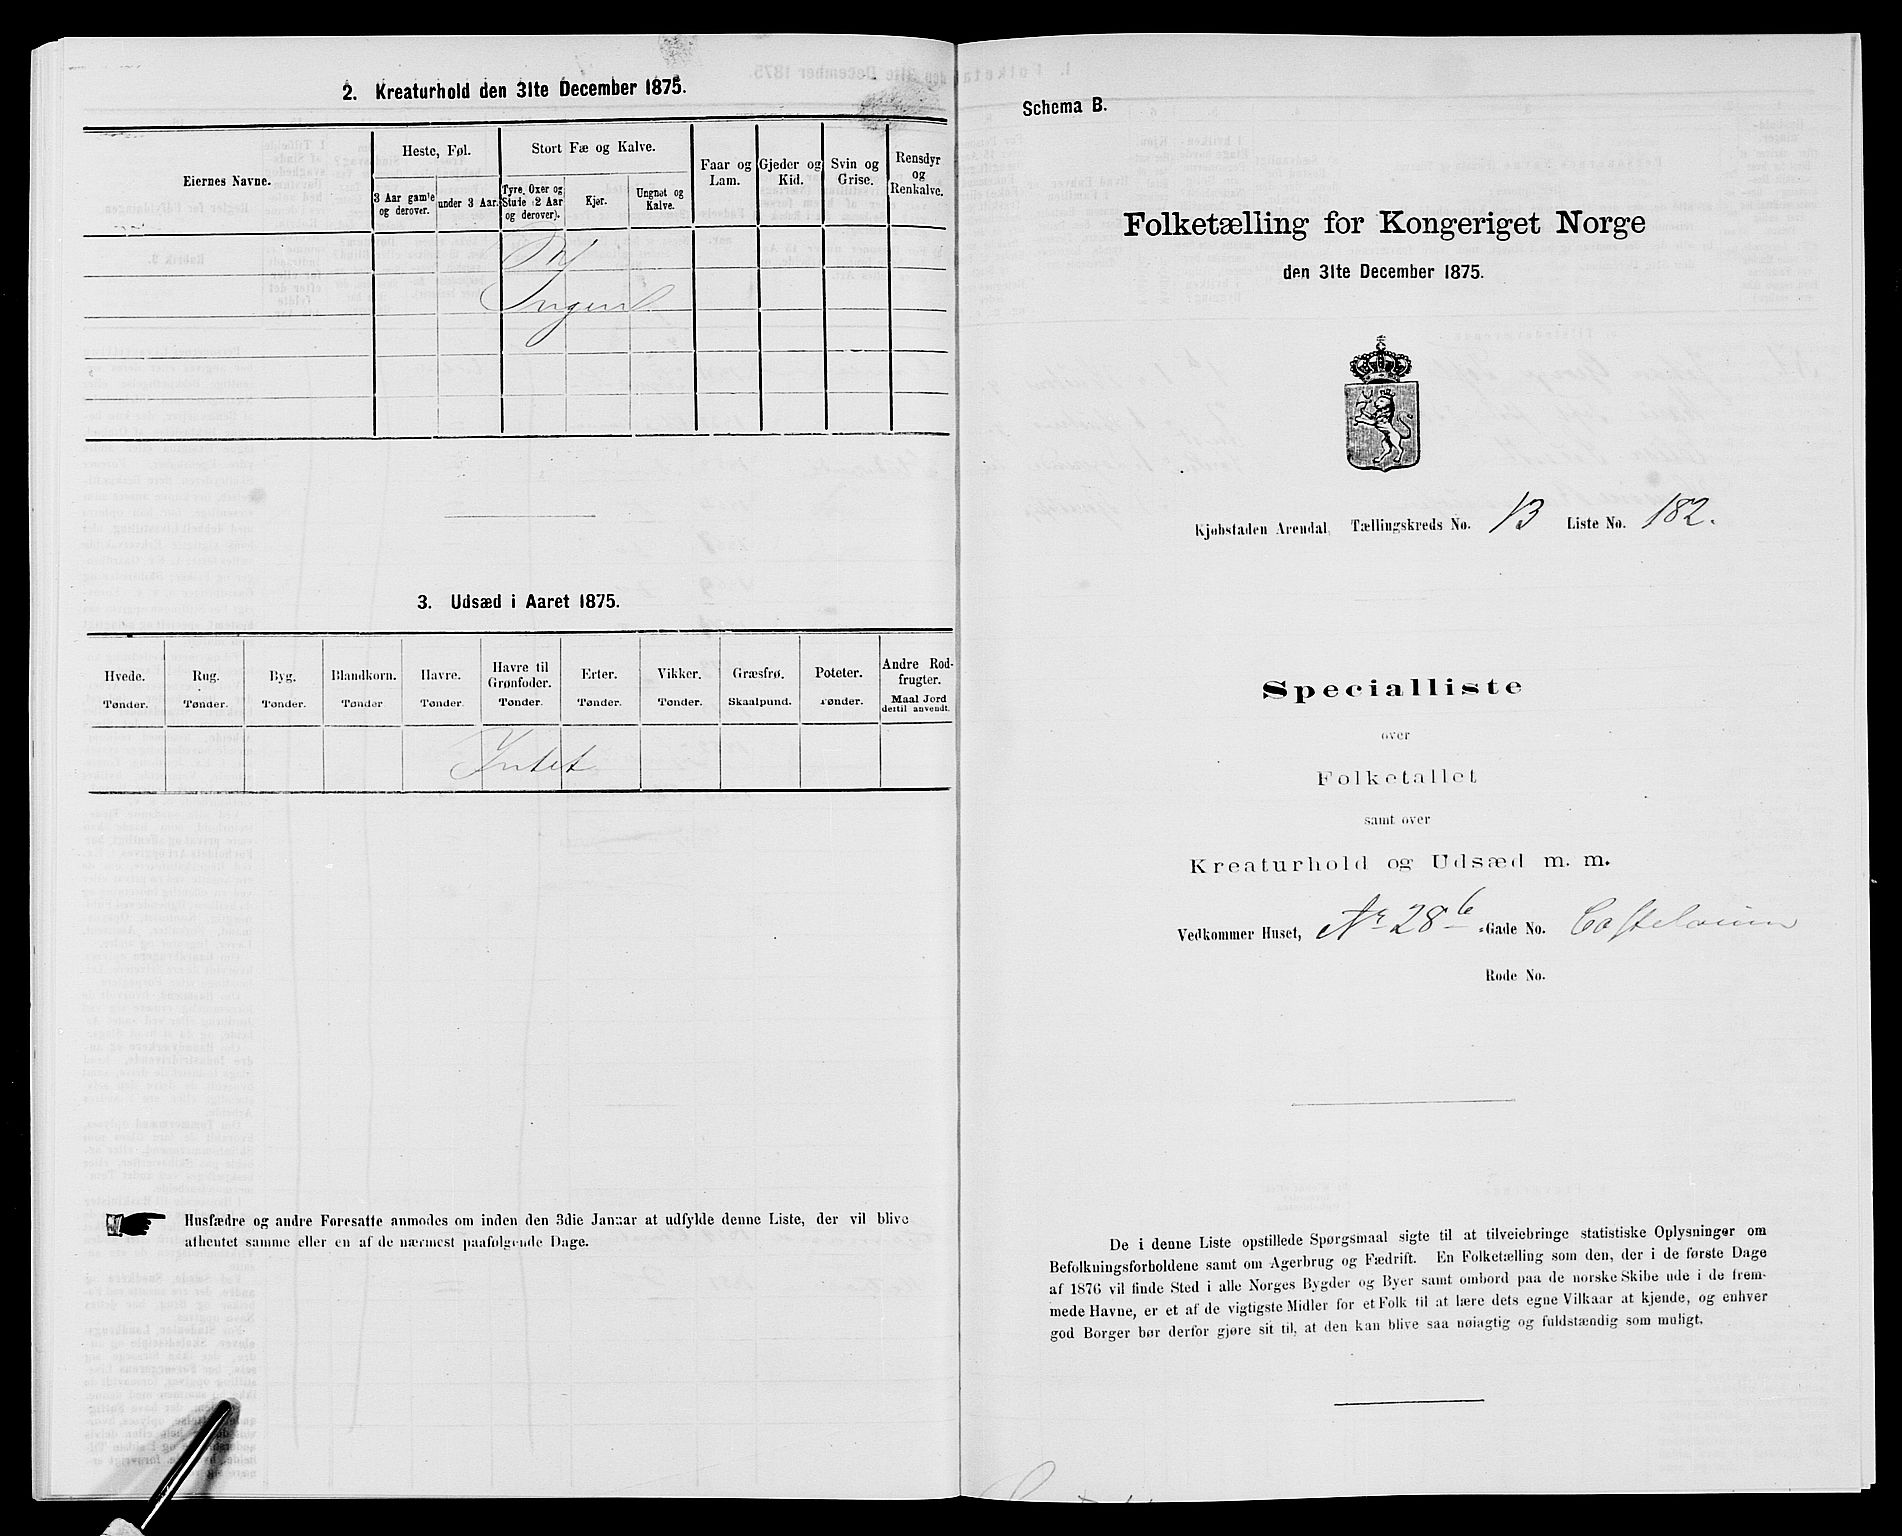 2. Kreaturhold den 31te December 1875.
Eiernes Navne.
Heste, Føl.
Stort Fæ og Kalve.
Faar og Lam.
Gjeder og Kid.
Svin og Grise.
Rensdyr og Renkalve.
3 Aar gamle og derover.
under 3 Aar.
Tyre, Oxer og Stude (2 Aar og derover).
Kjør.
Ungnøt og Kalve.
Ingen
3. Udsæd i Aaret 1875.
Hvede. Rug. Byg. Blandkorn. Havre. Havre til Grønfoder. Erter. Vikker. Græsfrø. Poteter. Andre Rodfrugter.
Tønder. Tønder. Tønder. Tønder Tønder. Tønder. Tønder. Tønder. Skaalpund. Tønder. Maal Jord dertil anvendt.
Intet
Husfædre og andre Foresatte anmodes om inden den 3die Januar at udfylde denne Liste, der vil blive
afhentet samme eller en af de nærmest paafølgende Dage.
Schema B.
Folketælling for Kongeriget Norge
den 31te December 1875.
Kjøbstaden Arendal, Tællingskreds No. 13 Liste No. 182.
Specialliste
over
Folketallet
samt over
Kreaturhold og Udsæd m. m.
Vedkommer Huset, Nr 28 b Gade No.
Rode No.
De i denne Liste opstillede Spørgsmaal sigte til at tilveiebringe statistiske Oplysninger om
Befolkningsforholdene samt om Agerbrug og Fædrift. En Folketælling som den, der i de første Dage
af 1876 vil finde Sted i alle Norges Bygder og Byer samt ombord paa de norske Skibe ude i de frem-
mede Havne, er et af de vigtigste Midler for et Folk til at lære dets egne Vilkaar at kjende, og enhver
god Borger bør derfor gjøre sit til, at den kan blive saa nøiagtig og fuldstændig som muligt.